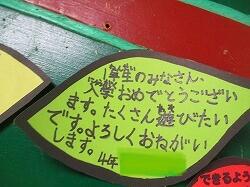 1年生のみなさん、
入学おめでとうござい
ます。たくさん遊びたい
です。よろしくおねがい
します。4年
できるよう